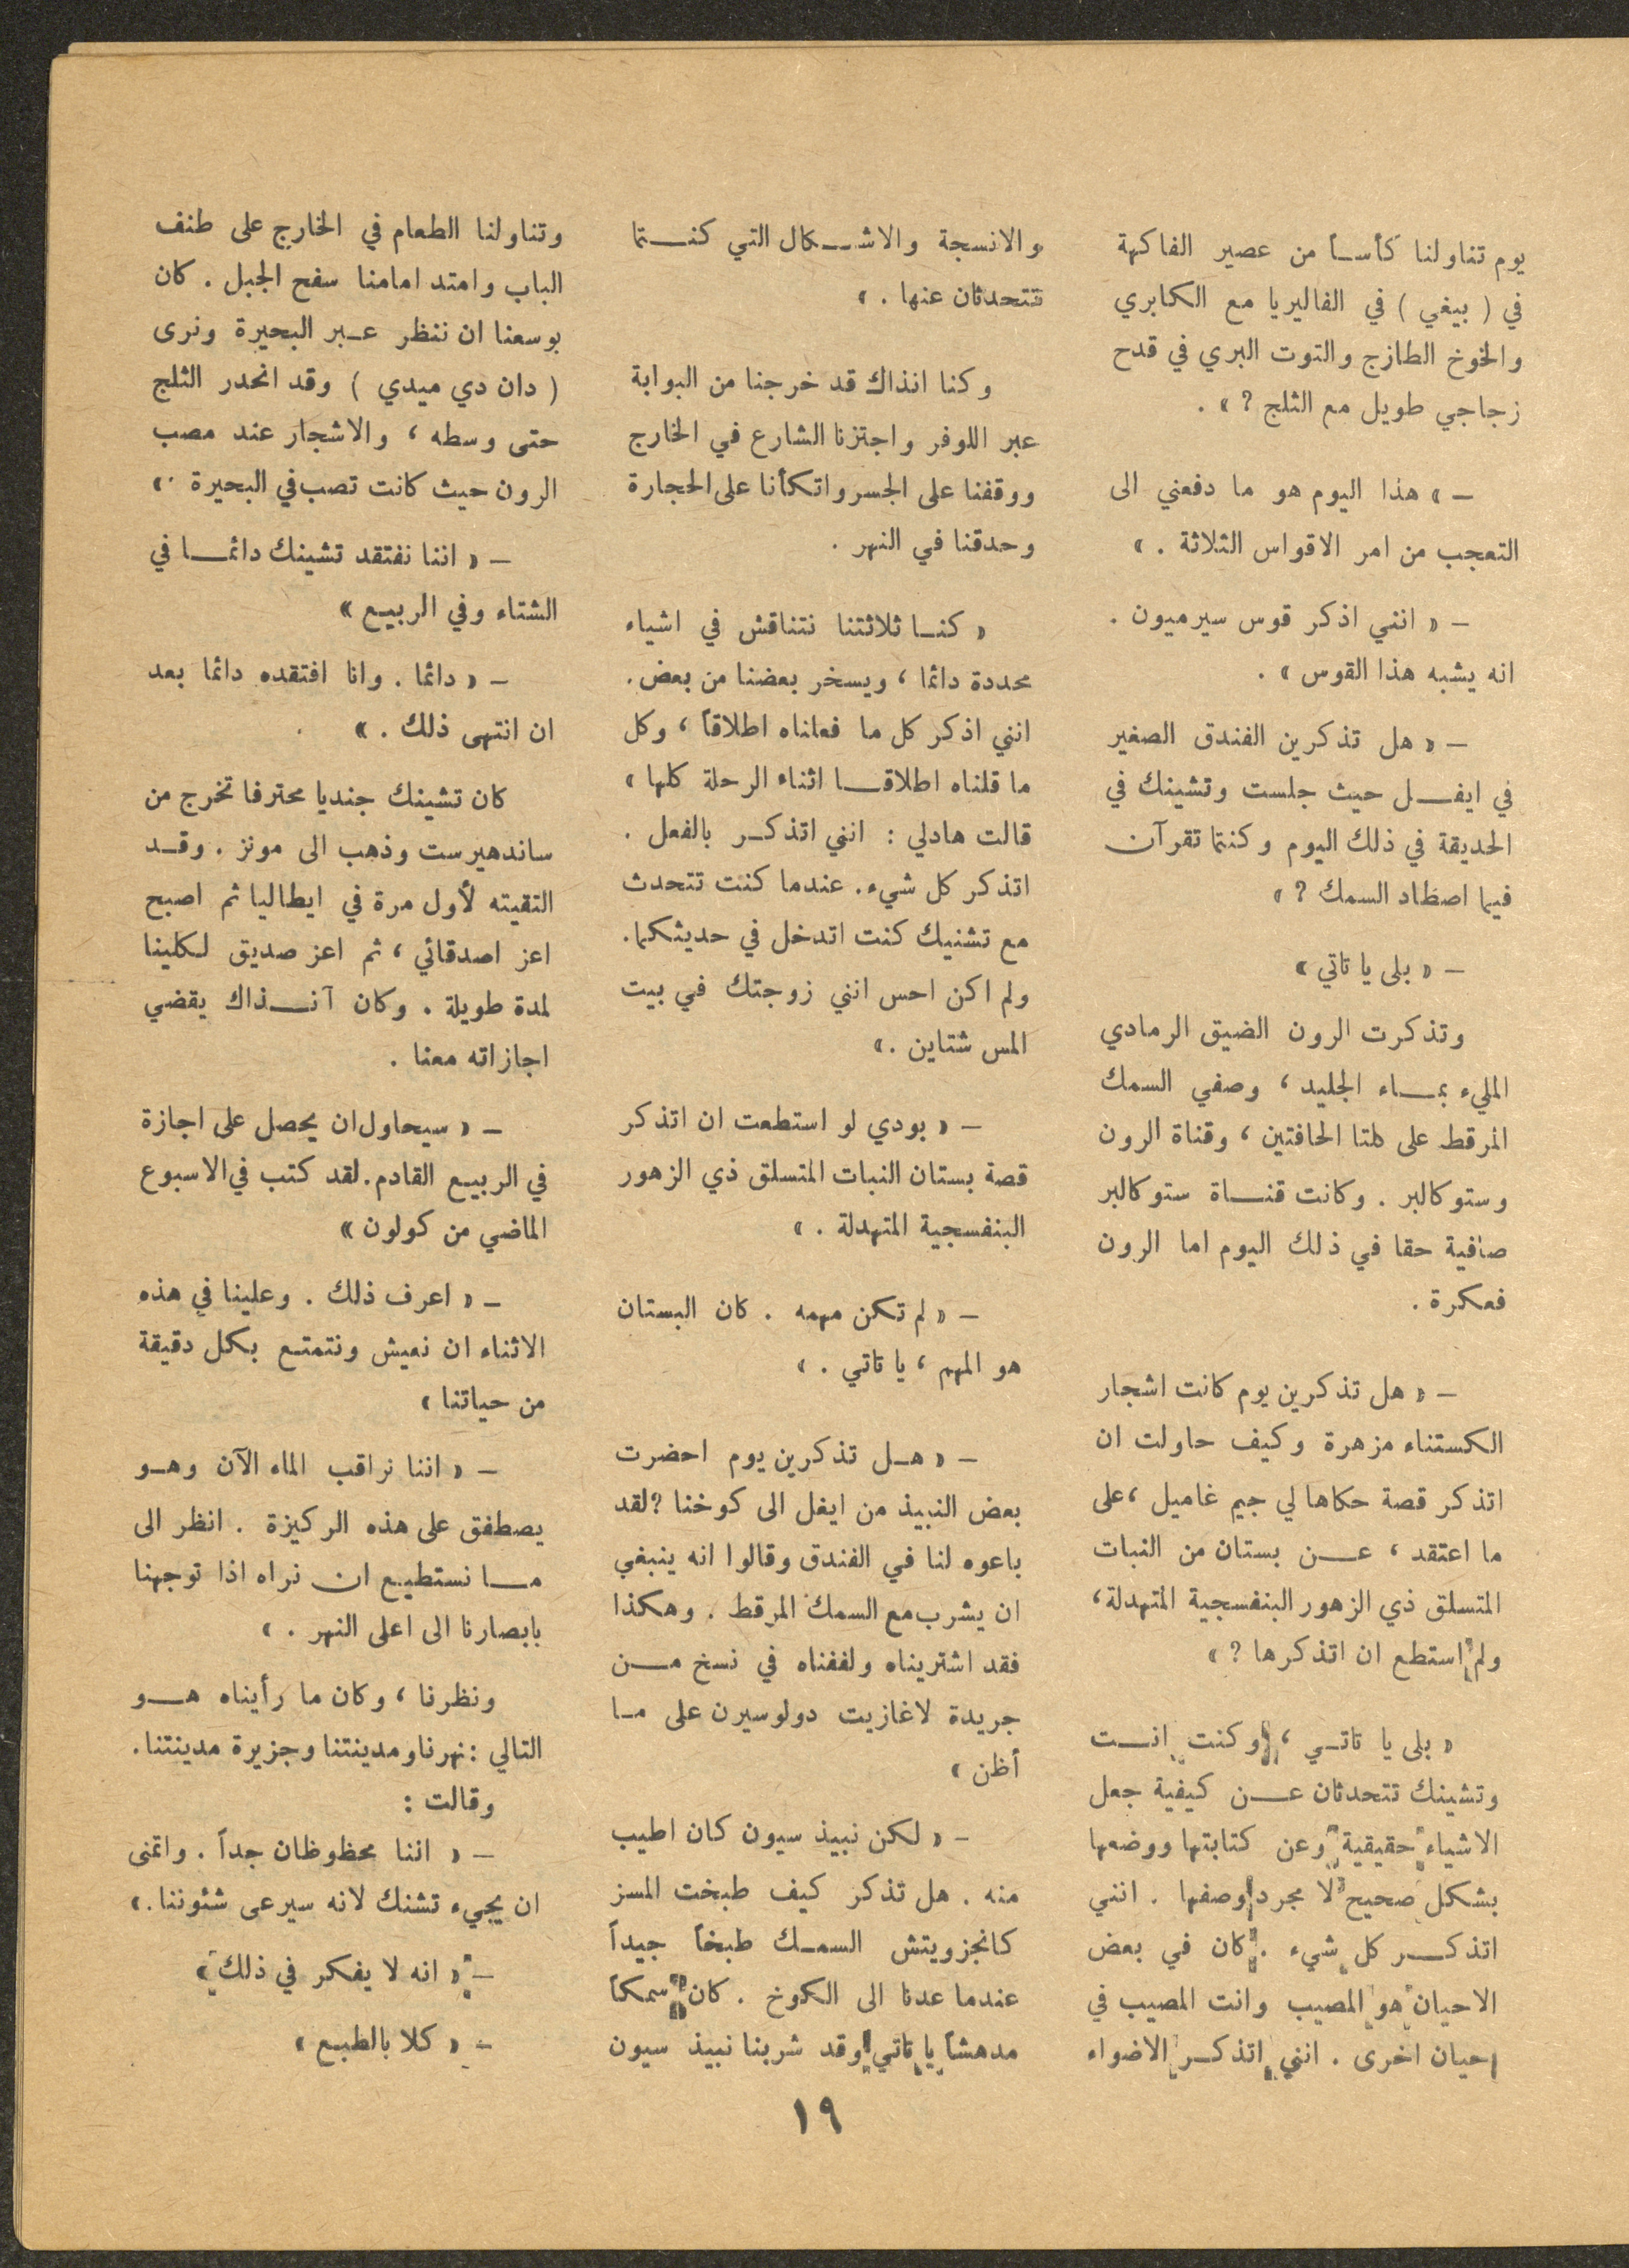 يوم تناولنا كأساً من عصير الفاكهة
في ( بيغي ) في الفاليريا مع الكابري
والخوخ الطازج والتوت البري في قدح
زجاجي طويل مع الثلج ? » .
– » هذا اليوم هو ما دفعني الى
التعجب من امر الاقواس الثلاثة . »
– « انني اذكر قوس سيرميون .
انه يشبه هذا القوس » .
– « هل تذكرين الفندق الصغير
في ايفل حيث جلست وتشينك في
الحديقة في ذلك اليوم وكنتما تقرآن
فيما اصطاد السمك ? »
– « بلى يا تاتي »
وتذكرت الرون الضيق الرمادي
المليء بماء الجليد ، وصفي السمك
المرقط على كلتا الحافتين ، وقناة الرون
وستوكالبر . وكانت قناة ستوكالبر
صافية حقا في ذلك اليوم اما الرون
فعكرة .
– « هل تذكرين يوم كانت اشجار
الكستناء مزهرة وكيف حاولت ان
اتذكر قصة حكاها لي جيم غاميل ، على
ما اعتقد ، عن بستان من النبات
المتسلق ذي الزهور البنفسجية المتهدلة ،
ولم استطع ان اتذكرها ? »
« بلى يا تاتي ، وكنت انت
وتشينك تتحدثان عن كيفية جعل
الاشياء حقيقية وعن كتابتها ووضعها
بشكل صحيح لا مجرد وصفها . انني
اتذكر كل شيء . كان في بعض
الاحيان هو المصيب وانت المصيب في
احيان اخرى . انني اتذكر الاضواء
والانسجة والاشكال التي كنتما
تتحدثان عنها . »
وكنا انذاك قد خرجنا من البوابة
عبر اللوفر واجتزنا الشارع في الخارج
ووقفنا على الجسر واتكأنا على الحجارة
وحدقنا في النهر .
« كنا ثلاثتنا نتناقش في اشياء
محددة دائما ، ويسخر بعضنا من بعض .
انني اذكر كل ما فعلناه اطلاقاً ، وكل
ما قلناه اطلاقا اثناء الرحلة كلها »
قالت هادلي : انني اتذكر بالفعل .
اتذكر كل شيء . عندما كنت تتحدث
مع تشنيك كنت اتدخل في حديثكما .
ولم اكن احس انني زوجتك في بيت
المس شتاين . »
– « بودي لو استطعت ان اتذكر
قصة بستان النبات المتسلق ذي الزهور
البنفسجية المتهدلة . »
– « لم تكن مهمه . كان البستان
هو المهم ، يا تاتي . »
– « هل تذكرين يوم احضرت
بعض النبيذ من ايغل الى كوخنا ? لقد
باعوه لنا في الفندق وقالوا انه ينبغي
ان يشرب مع السمك المرقط . وهكذا
فقد اشتريناه ولففناه في نسخ من
جريدة لاغازيت دولوسيرن على ما
أظن »
– « لكن نبيذ سيون كان اطيب
منه . هل تذكر كيف طبخت المسز
كانجزويتش السمك طبخاً جيداً
عندما عدنا الى الكوخ . كان سمكاً
مدهشاً يا تاتي وقد شربنا نبيذ سيون
وتناولنا الطعام في الخارج على طنف
الباب وامتد امامنا سفح الجبل . كان
بوسعنا ان ننظر عبر البحيرة ونرى
( دان دي ميدي ) وقد انحدر الثلج
حتى وسطه ، والاشجار عند مصب
الرون حيث كانت تصب في البحيرة . »
– « اننا نفتقد تشينك دائما في
الشتاء وفي الربيع »
– « دائما . وانا افتقده دائما بعد
ان انتهى ذلك . »
كان تشينك جنديا محترفا تخرج من
ساندهيرست وذهب الى مونز . وقد
التقيته لأول مرة في ايطاليا ثم اصبح
اعز اصدقائي ، ثم اعز صديق لكلينا
لمدة طويلة . وكان آنذاك يقضي
اجازاته معنا .
– « سيحاول ان يحصل على اجازة
في الربيع القادم . لقد كتب في الاسبوع
الماضي من كولون »
– « اعرف ذلك . وعلينا في هذه
الاثناء ان نعيش ونتمتع بكل دقيقة
من حياتنا »
– « اننا نراقب الماء الآن وهو
يصطفق على هذه الركيزة . انظر الى
ما نستطيع ان نراه اذا توجهنا
بابصارنا الى اعلى النهر . »
ونظرنا ، وكان ما رأيناه هو
التالي : نهرنا ومدينتنا وجزيرة مدينتنا .
وقالت :
– « اننا محظوظان جداً . واتمنى
ان يجيء تشنك لانه سيرعى شئوننا . »
– « انه لا يفكر في ذلك »
– « كلا بالطبع »
١٩